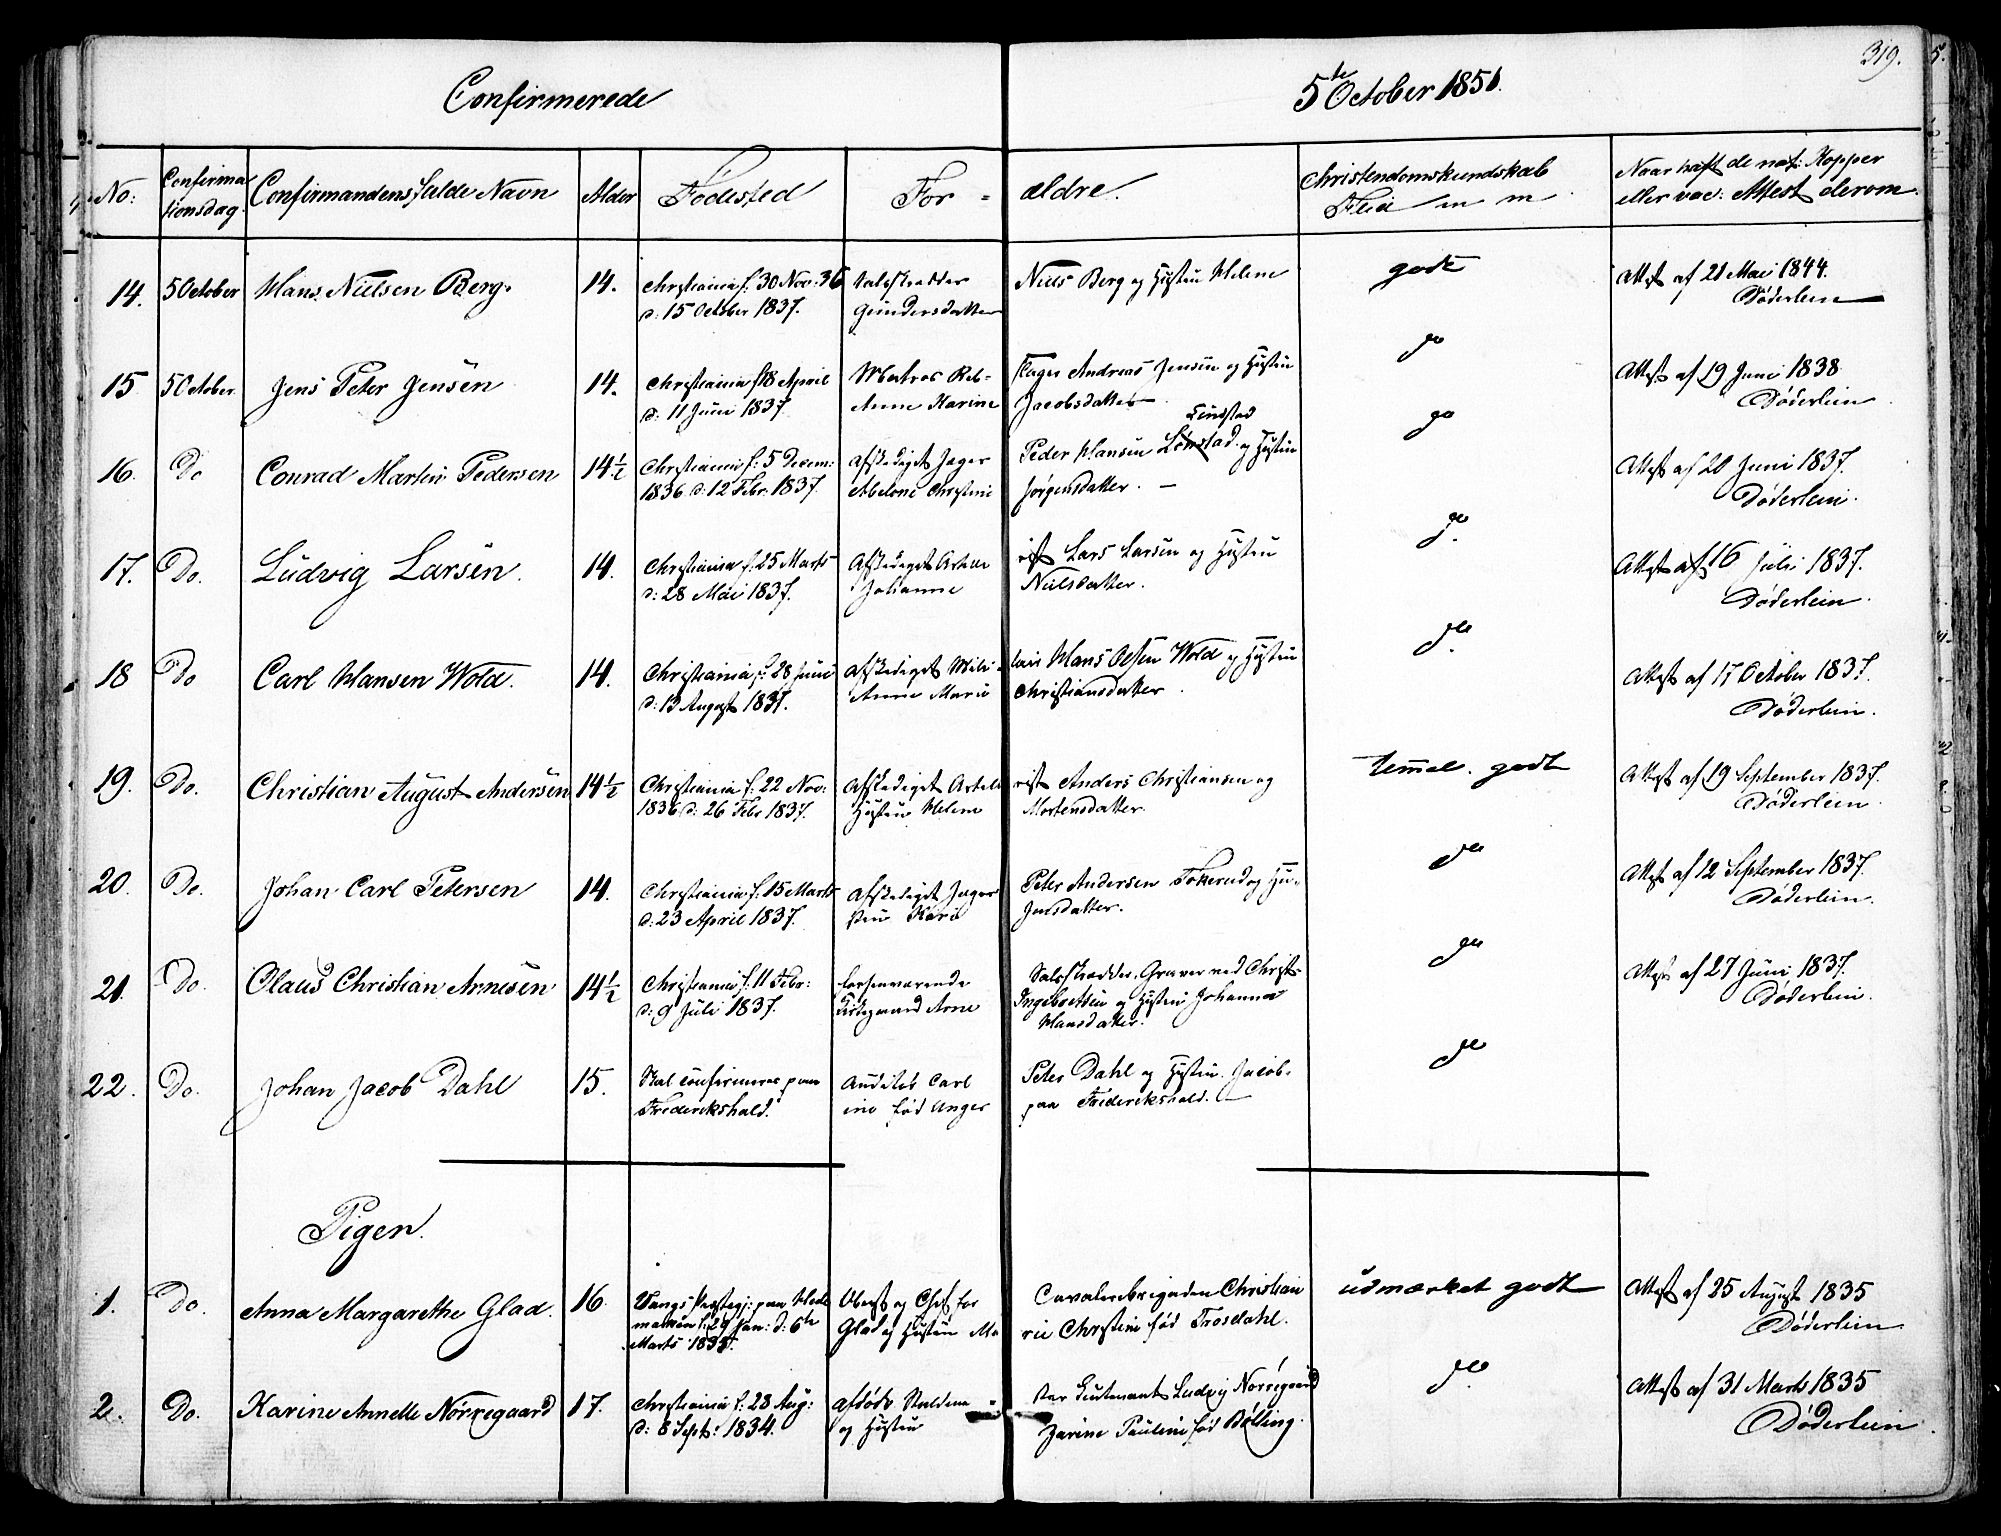 319.
Confirmerede 5te October 1851.
No: Confirmationsdag. Confirmandens fulde Navn Alder Fødested For - ældre. Christendomskundskab Flid m m Naar haft de nat: Kopper eller vac: Attest derom.
14. 5 October Hans Nielsen Berg. 14. Christiania f: 30 Nov. 36 Niels Berg og Hustru Helene godt Attest af 21 Mai 1844.
d: 15 October 1837. Gundersdatter Døderlein
15 5 October Jens Peter Jensen 14. Christiania f 18 April Andreas Jensen og Hustru do Attest af 19 Juni 1838.
d: 11 Juni 1837. Anne Karine Jacobsdatter Døderlein
Linnstad
16. Do Conrad Martin Pedersen 14½ Christiania f: 5 Decem: Afskediget Jæger Peder Hansen og Hustru do Attest af 20 Juni 1837.
1836 d: 12 Febr. 1837. Abelone Christine Jørgensdatter. Døderlein.
17. Do. Ludvig Larsen. 14. Christiania f. 25 Marts Afskediget Artille rist Lars Larsen og Hustru do. Attest af 16 Juli 1837.
d: 28 Mai 1837. Johanne Nielsdatter. Døderlein.
18 Do Carl Hansen Wold. 14. Christiania f: 28 Juni Afskediget Mili- tair Hans Olsen Wold og Hustru do. Attest af 17 October 1837.
d: 13 August 1837. Anne Marie Christiansdatter. Døderlein.
19. Do. Christian August Andersen 14½ Christiania f: 22 Nov: Afskediget Artille rist Anders Christiansen og temmel. godt Attest af 19 September 1837.
1836 d: 26 Febr 1837. Hustru Helene Mortensdatter. Døderlein.
20. Do. Johan Carl Petersen 14. Christiania f. 15 Marts Afskediget Jæger Peter Andersen Tokerud og Hu- do Attest af 12 September 1837.
d: 23 April 1837. stru Kari Jensdatter. Døderlein.
21. Do. Olaus Christian Arnesen 14½ Christiania f. 11 Febr: forhenværende Graver ved Christ- do Attest af 27 Juni 1837.
d: 9 Juli 1837. Arne Ingebretsen og Hustru Johanna Døderlein.
Hansdatter.
22. Do. Johan Jacob Dahl 15. Skal confirmeres paa Auditør Carl Peter Dahl og Hustru Jacob- do
Frederikshald. ine fød Unger paa Frederikshald.
Piger.
1. Do. Anna Margarethe Glad. 16 Vangs Præstegj: paa Hede Oberst og Chef for Cavaleribrigaden Christian udmærket godt Attest af 25 August 1835
marken f: 29 Jan: d: 6te Glad og Hustru Ma rie Christine fød Trosdahl. Døderlein
Marts 1835.
2. Do. Karine Annette Nørregaard 17. Christiania f: 23 Aug: Afdøde Staldme- ster Lieutenant Ludvig Nørregaard do. Attest af 31 Marts 1835
d: 8 Sept: 1834. og Hustru Zarine Pauline fød Bølling. Døderlein.